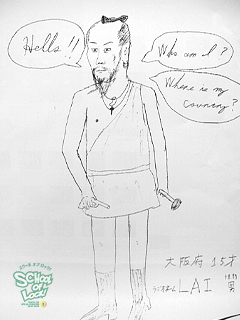 Hells !!
Who am I ?
Where is my
Country ?
大阪府 15才
ラジオネーム LAI 男
SCHOOL
OF
LOCK!